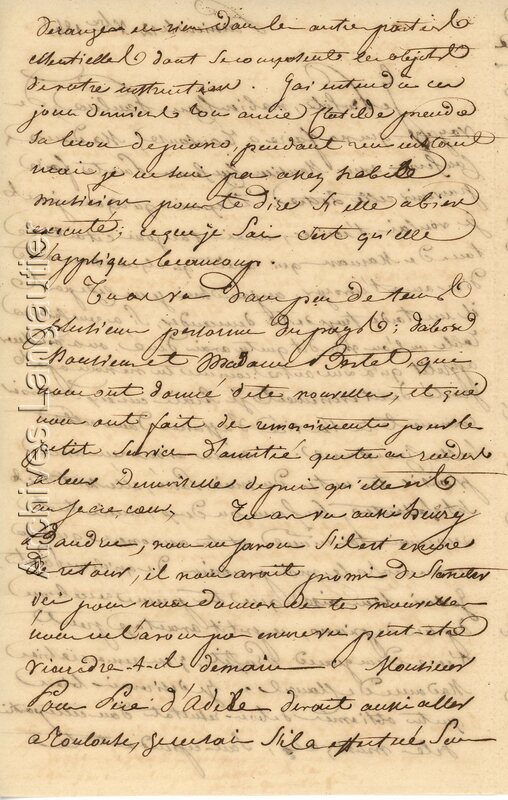 derange en rien dans les autres parties
essentielles dont se composent les objets
de votre instruction. J'ai entendu ces
jours derniers ton amie Clotilde prendre
sa leçon de piano, pendant un instant
mais je ne suis pas assez habile
musicien pour te dire si elle a bien
executé; ce que je sais c'est qu'elle
s'applique beaucoup.
Tu as vu dans peu de tems
plusieurs personnes du pays; dabord
Monsieur et Madame que
nous ont donné de tes nouvelles, et qui
nous ont fait de remerciments pour le
petit service d'amitié que tu as rendu
à leur Demoiselle depuis qu'elle est
au Sacré cœur. Tu as vu aussi henry
Daudrie, nous ne savons s'il est encore
de retour, il nous avait promis de s'arreter
ici pour nous donner de tes nouvelles
nous ne l'avons pas encore vu peut-etre
viendra-t-il demain. Monsieur
Pere d'Adèle devait aussi aller
a Toulouse, je ne sais s'il a effectué son
Archives Langautier